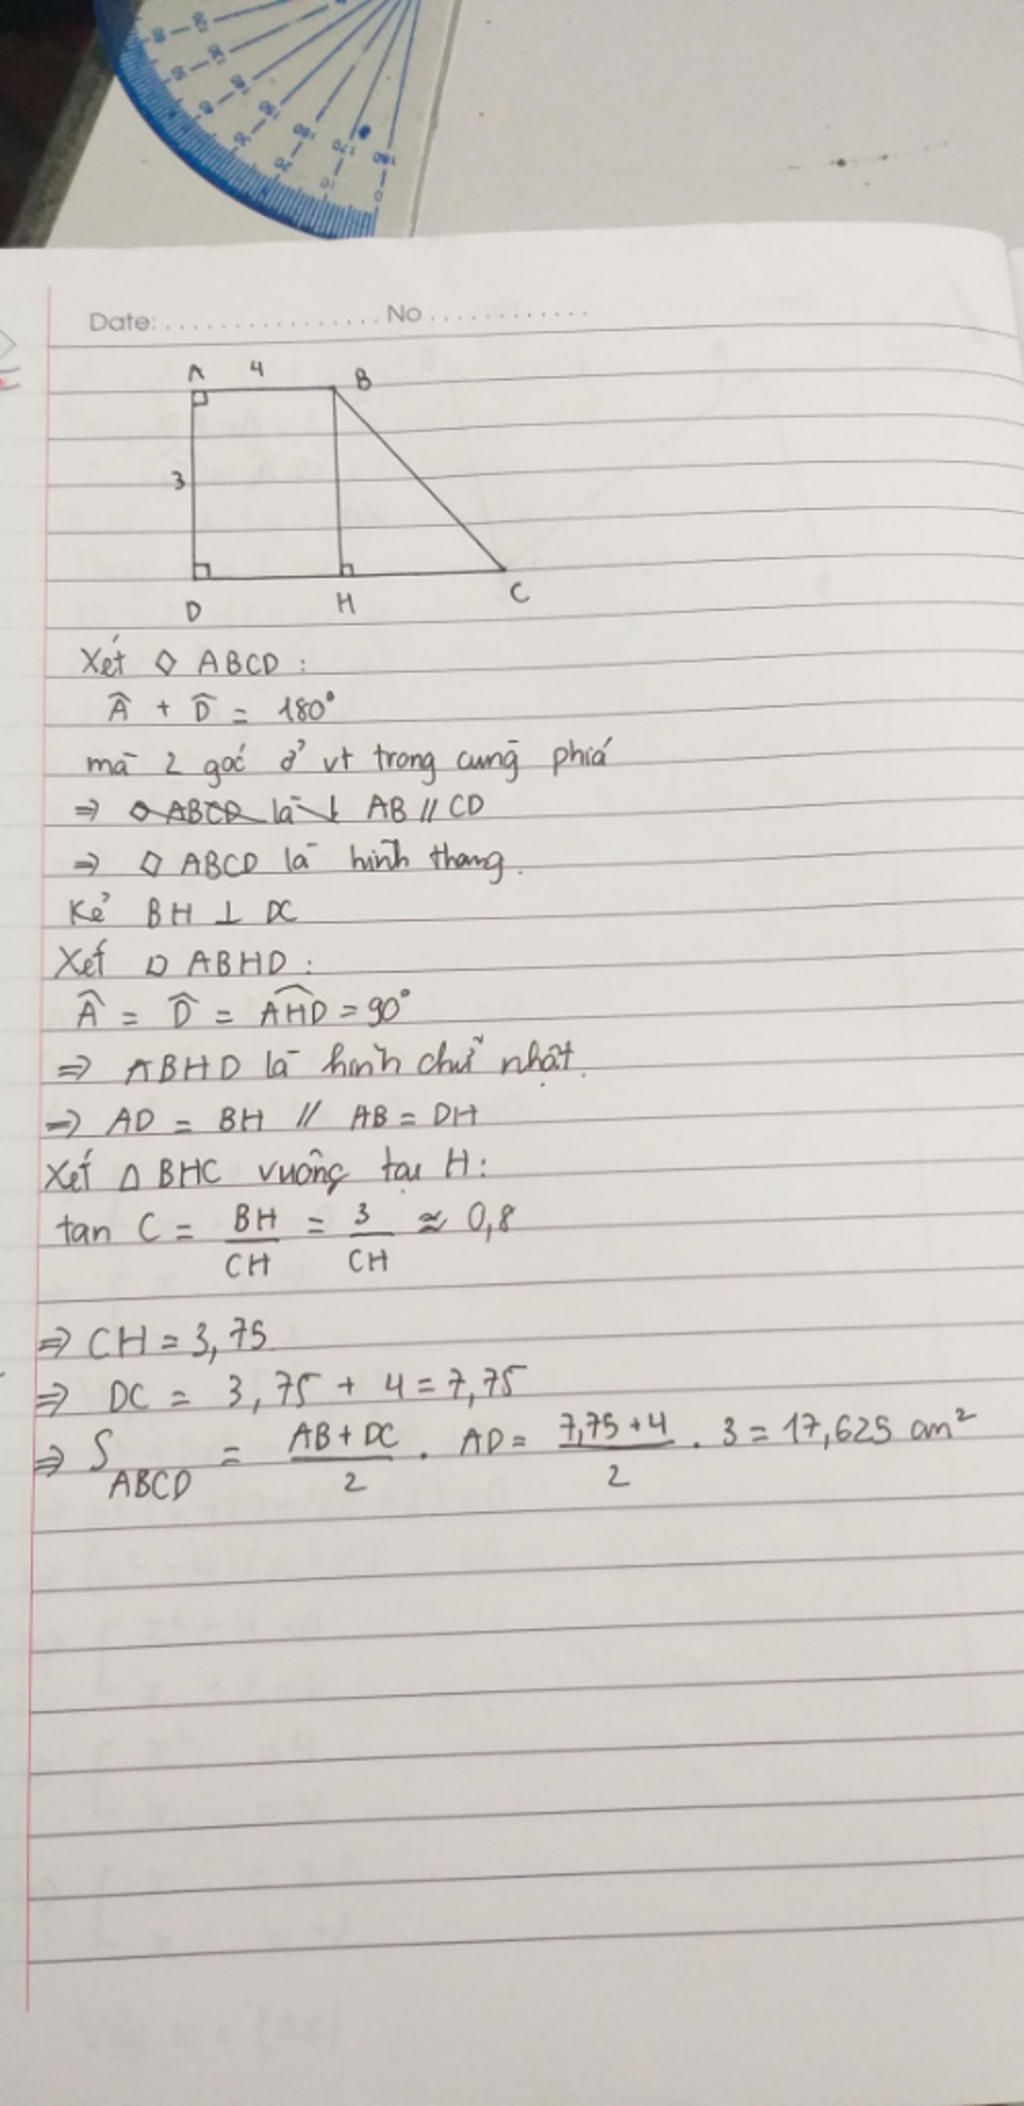 120
130
140
150
160
170
180
60
50
40
30
20
10
0
Date: ................. No ............
A 4 B
3
D H C
Xét ◇ ABCD :
Â + D̂ = 180°
mà 2 góc ở vt trong cùng phía
⇒ ◇ ABCD là AB // CD
⇒ ◇ ABCD là hình thang.
Kẻ BH ⊥ DC
Xét □ ABHD :
Â = D̂ = AHD = 90°
⇒ ABHD là hình chữ nhật.
⇒ AD = BH // AB = DH
Xét Δ BHC vuông tại H :
tan C = BH/CH = 3/CH ≈ 0,8
⇒ CH = 3,75
⇒ DC = 3,75 + 4 = 7,75
⇒ S ABCD = (AB + DC)/2 . AD = (7,75 + 4)/2 . 3 = 17,625 cm²